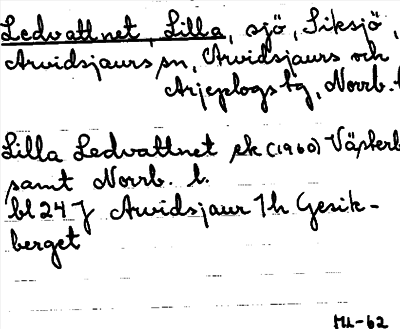 Ledvattnet, Lilla, sjö, Siksjö,
Arvidsjaurs sn, Arvidsjaurs och
Arjeplogs tg, Norrb. l
Lilla Ledvattnet ek (1960) Västerb
samt Norrb. l.
bl 24 J Arvidsjaur 7h Gesik-
berget
-62